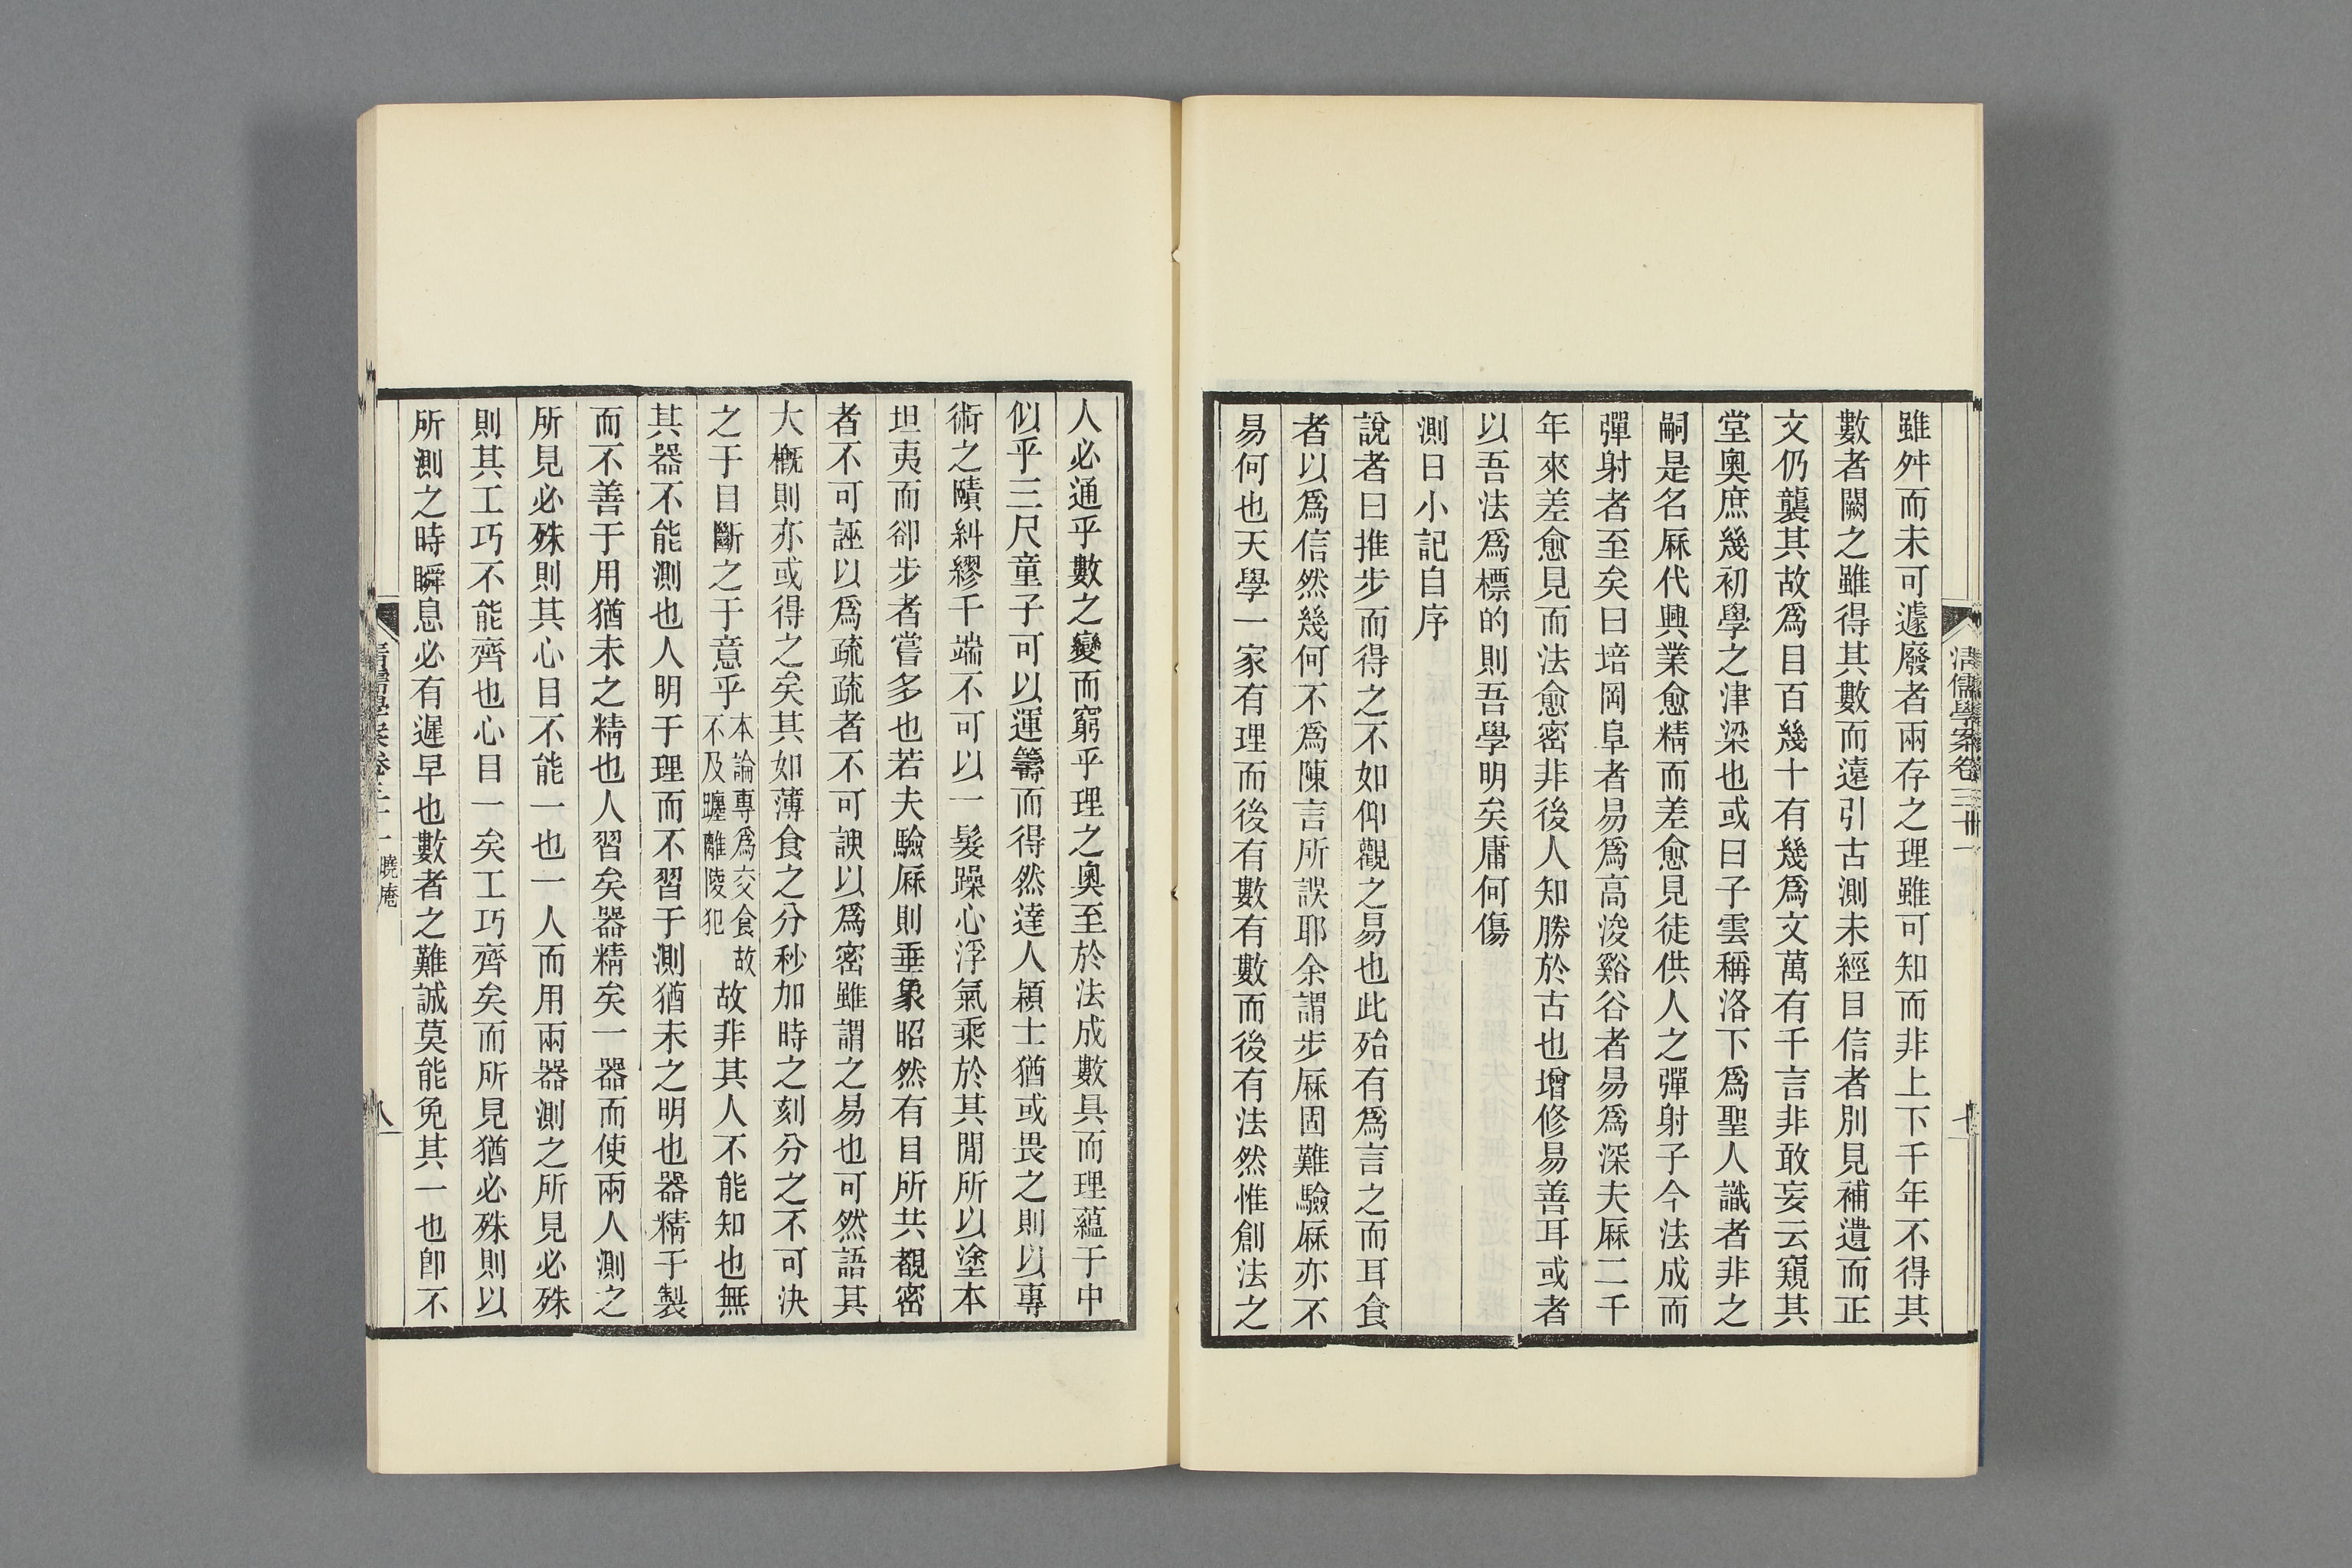 清儒學案卷三十一
七
雖舛而未可遽廢者兩存之理雖可知而非上下千年不得其
數者闕之雖得其數而遠引古測未經目信者別見補遺而正
文仍襲其故爲目百幾十有幾爲文萬有千言非敢妄云窺其
堂奧庶幾初學之津梁也或曰子雲稱洛下爲聖人識者非之
嗣是名厤代興業愈精而差愈見徒供人之彈射子今法成而
彈射者至矣曰培岡阜者易爲高浚谿谷者易爲深夫厤二千
年來差愈見而法愈密非後人知勝於古也增修易善耳或者
以吾法爲標的則吾學明矣庸何傷
測日小記自序
說者曰推步而得之不如仰觀之易也此殆有爲言之而耳食
者以爲信然幾何不爲陳言所誤耶余謂步厤固難驗厤亦不
易何也天學一家有理而後有數有數而後有法然惟創法之
人必通乎數之變而窮乎理之奧至於法成數具而理蘊于中
似乎三尺童子可以運籌而得然達人穎士猶或畏之則以專
術之賾糾繆千端不可以一髮躁心浮氣乘於其閒所以塗本
坦夷而卻步者嘗多也若夫驗厤則垂象昭然有目所共覩密
者不可誣以爲疏疏者不可諛以爲密雖謂之易也可然語其
大概則亦或得之矣其如薄食之分秒加時之刻分之不可決
之于目斷之于意乎本論專爲交食故不及躔離陵犯故非其人不能知也無
其器不能測也人明于理而不習于測猶未之明也器精于製
而不善于用猶未之精也人習矣器精矣一器而使兩人測之
所見必殊則其心目不能一也一人而用兩器測之所見必殊
則其工巧不能齊也心目一矣工巧齊矣而所見猶必殊則以
所測之時瞬息必有遲早也數者之難誠莫能免其一也卽不
清儒學案卷三十一 曉庵
八